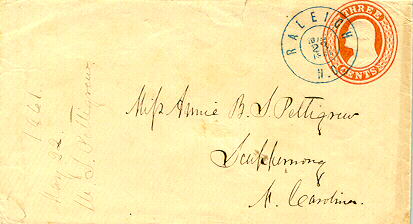 THREE
CENTS
RALEIGH
N.C.
Miss Annie B. S. Pettigrew
Scuppernong
N. Carolina.
1861
May 22
S. Pettigrew